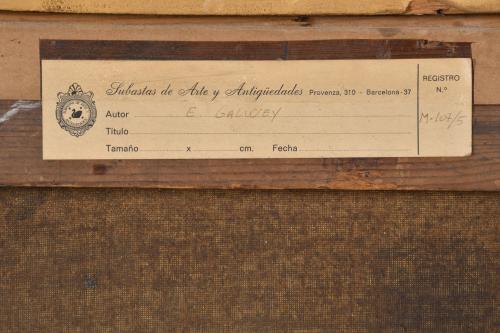 Subastas de Arte y Antigüedades Provenza, 310 - Barcelona-37
REGISTRO
N.º
Autor E. GALWEY
Título
M-107/5
Tamaño x cm. Fecha